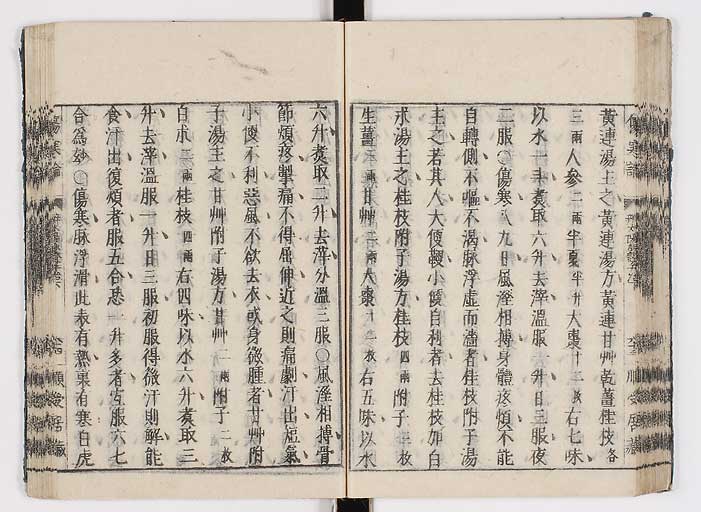 黃連湯主之黃連湯方黃連甘艸乾薑桂枝各
三兩人參二兩半夏半升大棗十二枚右七味
以水一斗煑取六升去滓溫服一升日三服夜
二服〇傷寒八九日風溼相搏身體疼煩不能
自轉側不嘔不渴脉浮虛而濇者桂枝附子湯
主之若其人大便鞕小便自利者去桂枝加白
朮湯主之桂枝附子湯方桂枝四兩附子三枚
生薑三兩甘艸二兩大棗十二枚右五味以水
六升煑取二升去滓分溫三服〇風溼相搏骨
節煩疼掣痛不得屈伸近之則痛劇汗出短氣
小便不利惡風不欲去衣或身微腫者甘艸附
子湯主之甘艸附子湯方甘艸二兩附子二枚
白朮二兩桂枝四兩右四味以水六升煑取三
升去滓溫服一升日三服初服得微汗則解能
食汗出復煩者服五合恐一升多者宜服六七
合為妙〇傷寒脉浮滑此表有熱裏有寒白虎
傷寒論